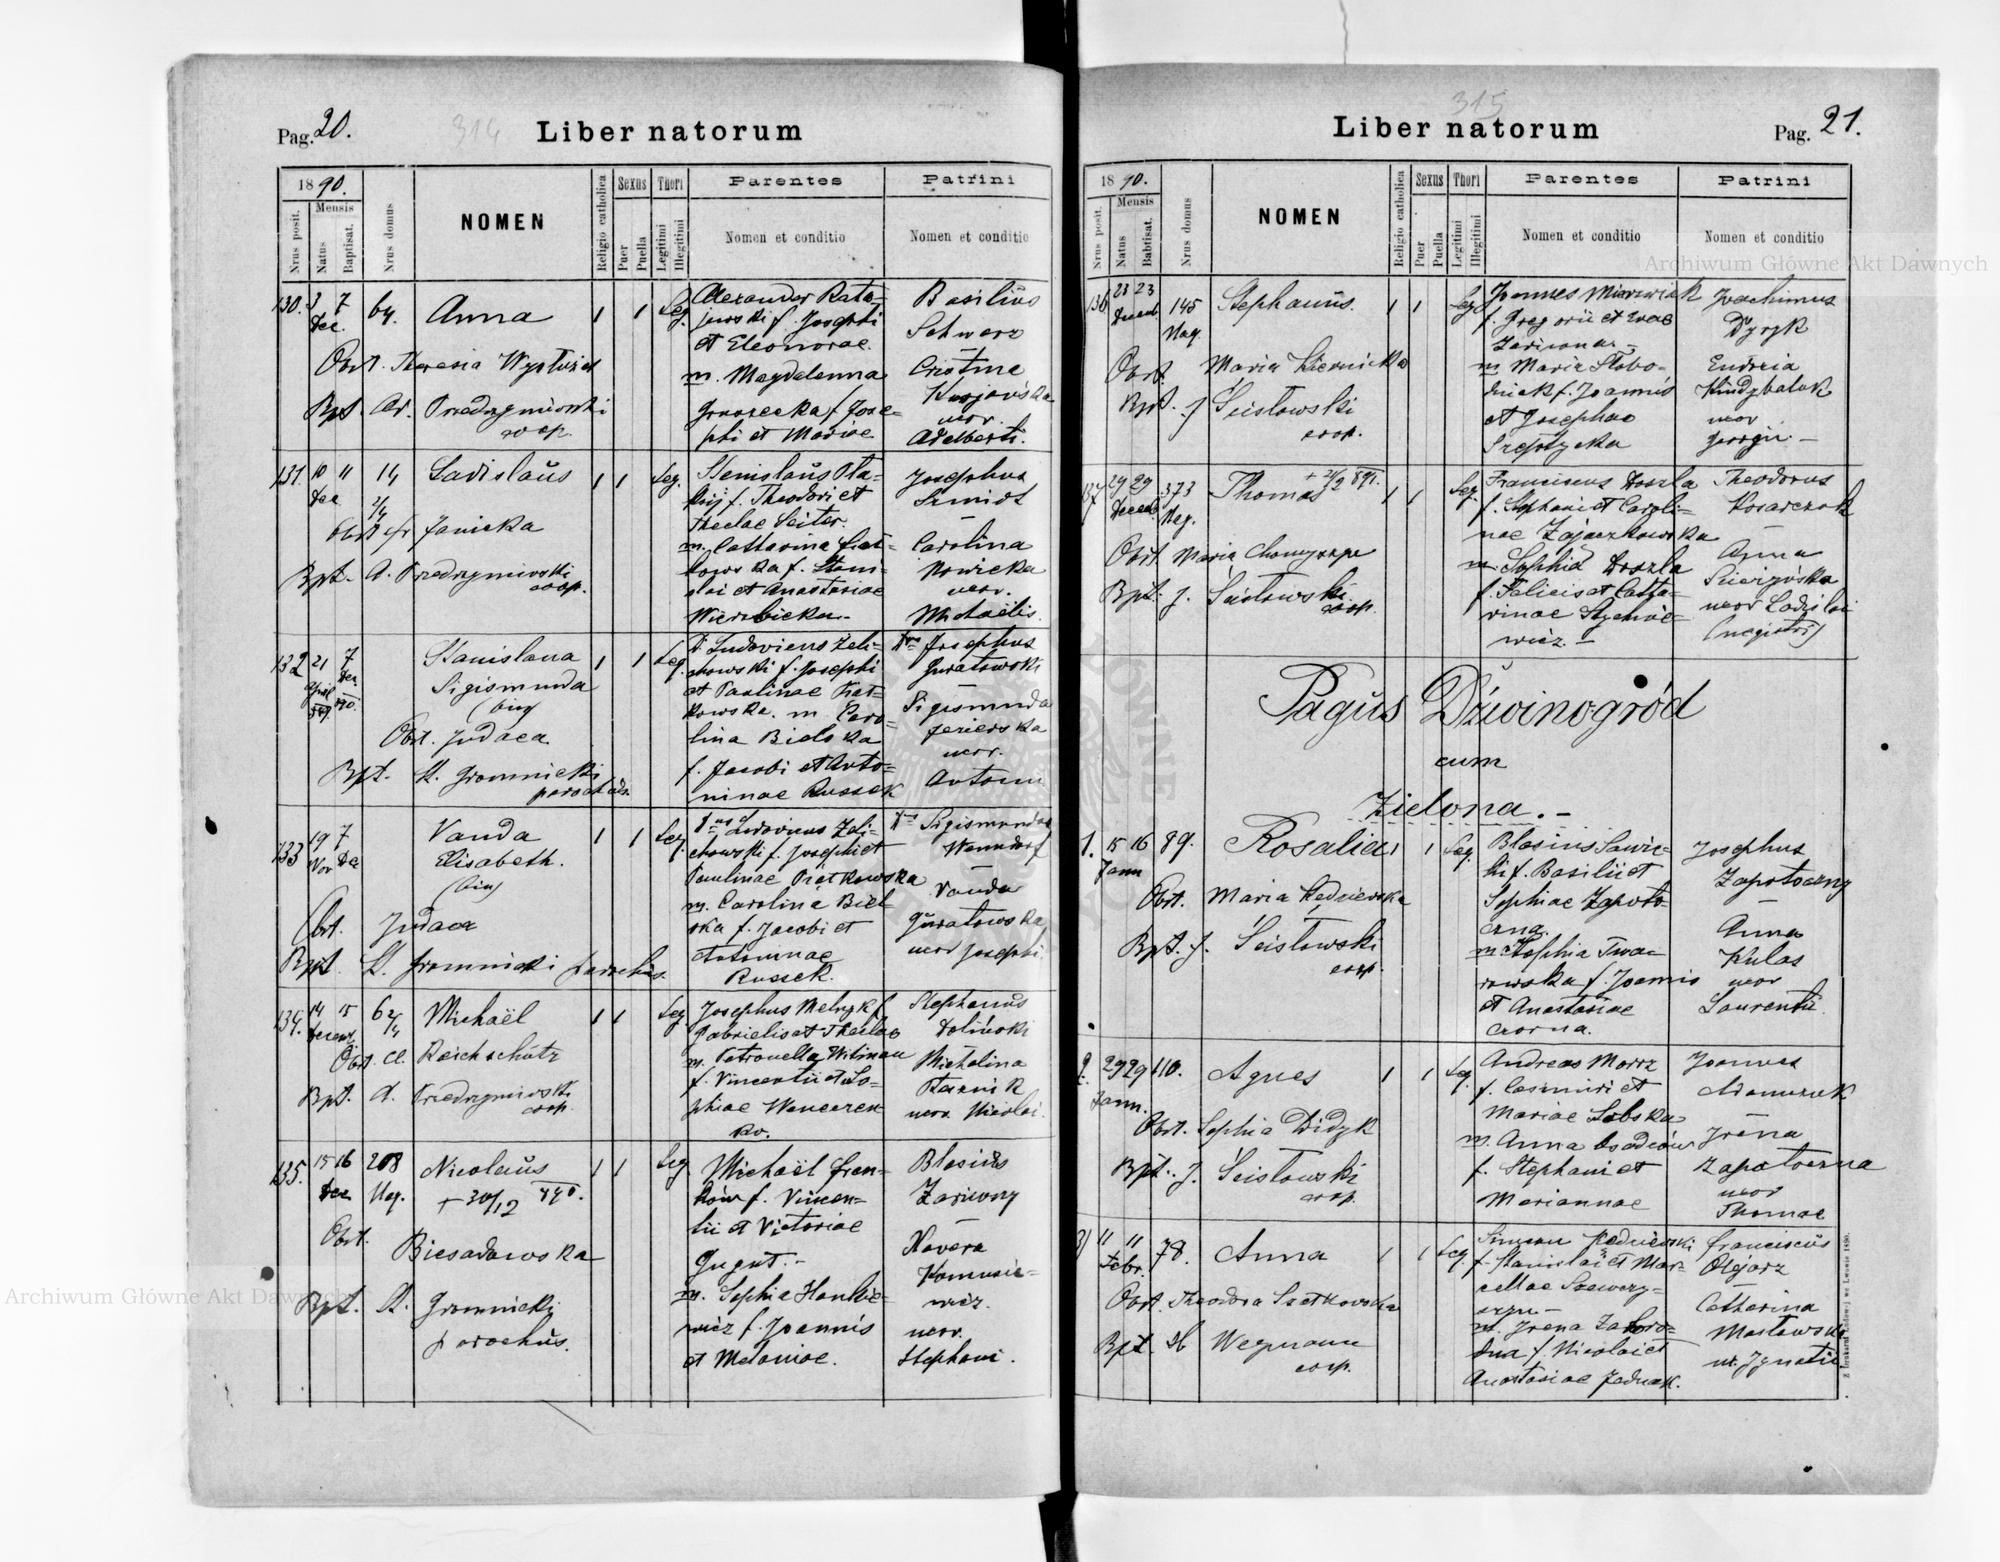 Pag. 20.
314
Liber natorum
1890.
Nrus posit.
Mensis
Natus
Baptisat.
Nrus domus
NOMEN
Religio catholica
Sexus
Puer
Puella
Thori
Legitimi
Illegitimi
Parentes
Nomen et conditio
Patrini
Nomen et conditio
130. 3 7 Dec. 64. Anna 1 1 Leg.
Obst. Theresia
Bpt. Ad. Przedrzymirski
coop.
Alexander Rata-
jewski f. Josephi
et Eleonorae.
m. Magdalenna
f. Jose-
phi et Mariae
Basilius
Schwarz
Cristine
uxor.
Adelberti.
131. 10 11 Dec 14 Ladislaus 1 1 Leg.
Obst. Janicka
Bpt. A. Przedrzymirski
coop.
Stanislaus
f. Theodori et
Theclae Seiter.
m. Catharina
f. Stani-
slai et Anastasiae
Wierzbicka.
Josephus
Szmidt
Carolina
Nowicka
uxor.
Michaëlis.
132 21 April 889 7 Dec 890. Stanislava 1 1 Leg.
Sigismunda
(bin)
Obst. Judaea
Bpt. St. Gromnicki
parochus.
Ludovicus Zeli-
chowski f. Josephi
et Paulinae Piat-
kowska. m. Caro-
lina Bielska
f. Jacobi et Anto-
ninae Russek
Josephus
Guratowski
Sigismunda
Jezierska
uxor.
Antonii
133 19 Nov 7 Dec Vanda 1 1 Leg.
Elisabeth.
(bin)
Obst. Judaea
Bpt. St. Gromnicki parochus.
Ludovicus Zeli-
chowski f. Josephi et
Paulinae Piatkowska
m. Carolina Biel-
ska f. Jacobi et
Antoninae
Russek.
Sigismundus
Wanda
Guratowska
uxor Josephi.
134. 14 15 Decem. 62 Michaël 1 1 Leg
Obst. Cl. Reichschütz
Bpt. A. Przedrzymirski
coop.
Josephus Melnyk f.
Gabrielis et Theclae
m. Petronella Witman
f. Vincentii et So-
phiae
Stephanus
Doliński
Michalina
uxor. Nicolai.
135. 15 16 Dec 208 Nag. Nicolaus 1 1 Leg
+ 30/12 890.
Obst. Biesadowska
Bpt. St. Gromnicki
parochus.
Michaël Fran-
ków f. Vincen-
tii et Victoriae
Gugut.-
m. Sophia Hankie-
wicz f. Joannis
et Melaniae.
Blasius
Zariczny
Xavera
Komusie-
wicz.
uxor.
Stephani.
Pag. 21.
315
Liber natorum
1890.
Nrus posit.
Mensis
Natus
Babtisat.
Nrus domus
NOMEN
Religio catholica
Sexus
Puer
Puella
Thori
Legitimi
Illegitimi
Parentes
Nomen et conditio
Patrini
Nomen et conditio
136. 23 23 Decemb. 145 Nag. Stephanus. 1 1 Leg
Obst. Maria
Bpt. J. Ścisłowski
coop.
Joannes Mierzwiak
f. Gregorii et Evae
m. Maria Słobo-
f. Joannis
et Josephae
Szeptycka
Joachimus
Dyryk
Eudoxia
Kindybaluk
uxor
Georgii.-
137 29 29 Decemb. 373 Nag. Thomas + 24/2 891. 1 1 Leg.
Obst Maria
Bpt. J. Ścisłowski
coop.
Franciscus Doszla
f. Stephani et Caroli-
nae Zajączkowska
m. Sophia Doszla
f. Felicis et Catha-
rinae
Theodorus
Kosarczuk
Anna
uxor Ladislai
(magistri)
Pagus Dźwinogród
cum
Zielona.-
1. 15 16 Jann 89. Rosalia 1 1 Leg.
Obst. Maria Kedrierska
Bpt. J. Ścisłowski
coop.
Blasius Sawic-
ki f. Basilii et
Sophiae Zapoto-
czna.
m. Sophia Twa-
rowska f. Joannis
et Anastasiae
Czorna.
Josephus
Zapotoczny
Anna
Kulas
uxor
Laurentii.
2. 29 29 Jann. 110. Agnes 1 1 Leg.
Obst. Sophia Didyk
Bpt. J. Ścisłowski
coop.
Andreas Morrz
f. Casimiri et
Mariae Sobska
m. Anna Osadców
f. Stephani et
Mariannae
Joannes
Adamczuk
Irena
Zapotoczna
uxor
Thomae
3) 11 11 Febr. 78. Anna 1 1 Leg.
Obst. Theodora
Bpt. Wegmann
coop.
Simeon Kedrierski
f. Stanislai et Mar-
cellae Szewery-
m. Irena
f. Nicolai et
Anastasiae
Franciscus
Olejarz
Catharina
Masłowska
ux. Ignatii
Archiwum Główne Akt Dawnych
Archiwum Główne Akt Dawnych